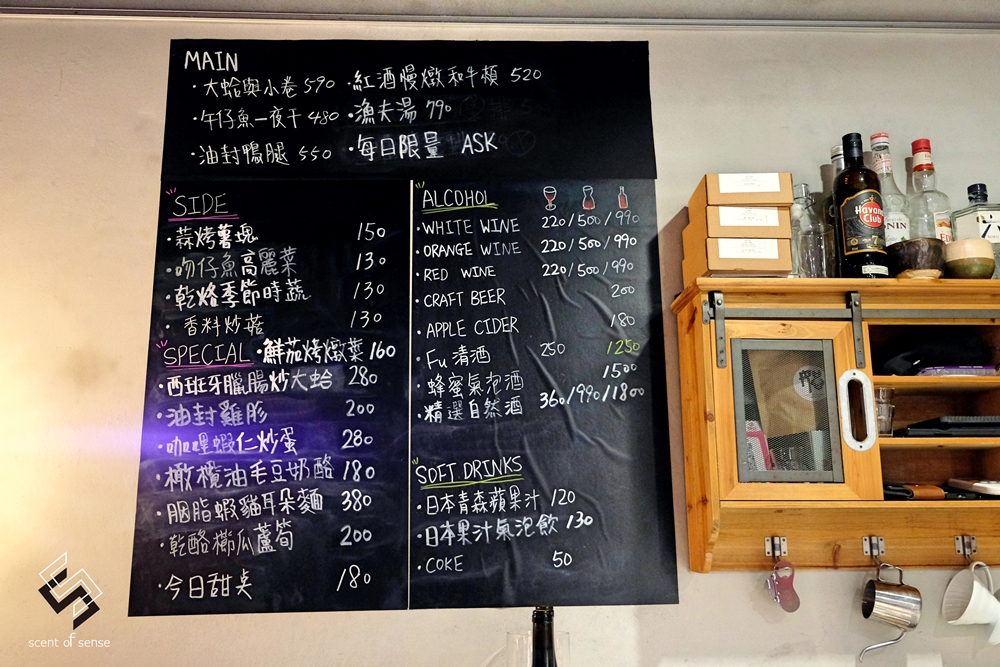 MAIN
·大蛤與小卷 590 ·紅酒慢燉和牛頰 520
·午仔魚一夜干 480 ·漁夫湯 790
·油封鴨腿 550 ·每日限量 ASK
SIDE
·蒜烤薯塊 150
·吻仔魚高麗菜 130
·乾烙季節時蔬 130
·香料炒菇 130
SPECIAL ·鮮茄烤燉菜 160
·西班牙臘腸炒大蛤 280
·油封雞胗 200
·咖哩蝦仁炒蛋 280
·橄欖油毛豆奶酪 180
·胭脂蝦貓耳朵麵 380
·乾酪櫛瓜蘆筍 200
·今日甜点 180
ALCOHOL
·WHITE WINE 220/500/990
·ORANGE WINE 220/500/990
·RED WINE 220/500/990
·CRAFT BEER 200
·APPLE CIDER 180
·Fu 清酒 250 1250
·蜂蜜氣泡酒 1500
·精選自然酒 360/990/1800
SOFT DRINKS
·日本青森蘋果汁 120
·日本果汁氣泡飲 130
·COKE 50
Havana Club
scent of sense